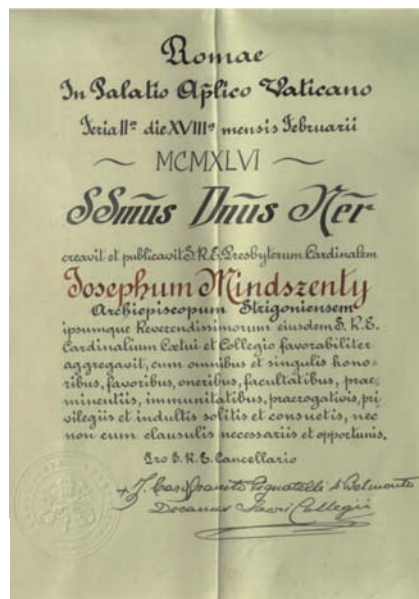 Romae
In Palatio Aplico Vaticano
Feria IIª die XVIIIª mensis Februarii
~ MCMXLVI ~
SSmus Dnus Ner
creavit et publicavit S. R. E. Presbyterum Cardinalem
Josephum Mindszenty
Archiepiscopum Strigoniensem
ipsumque Reverendissimorum eiusdem S. R. E.
Cardinalium Cœtui et Collegio favorabiliter
aggregavit, cum omnibus et singulis hono-
ribus, favoribus, oneribus, facultatibus, prae-
minentiis, immunitatibus, praerogativis, pri
vilegiis et indultis solitis et consuetis, nec
non cum clausulis necessariis et opportunis.
Pro S. R. E. Cancellario
+ J. Card. Granito Pignatelli di Belmonte
Decanus Sacri Collegii